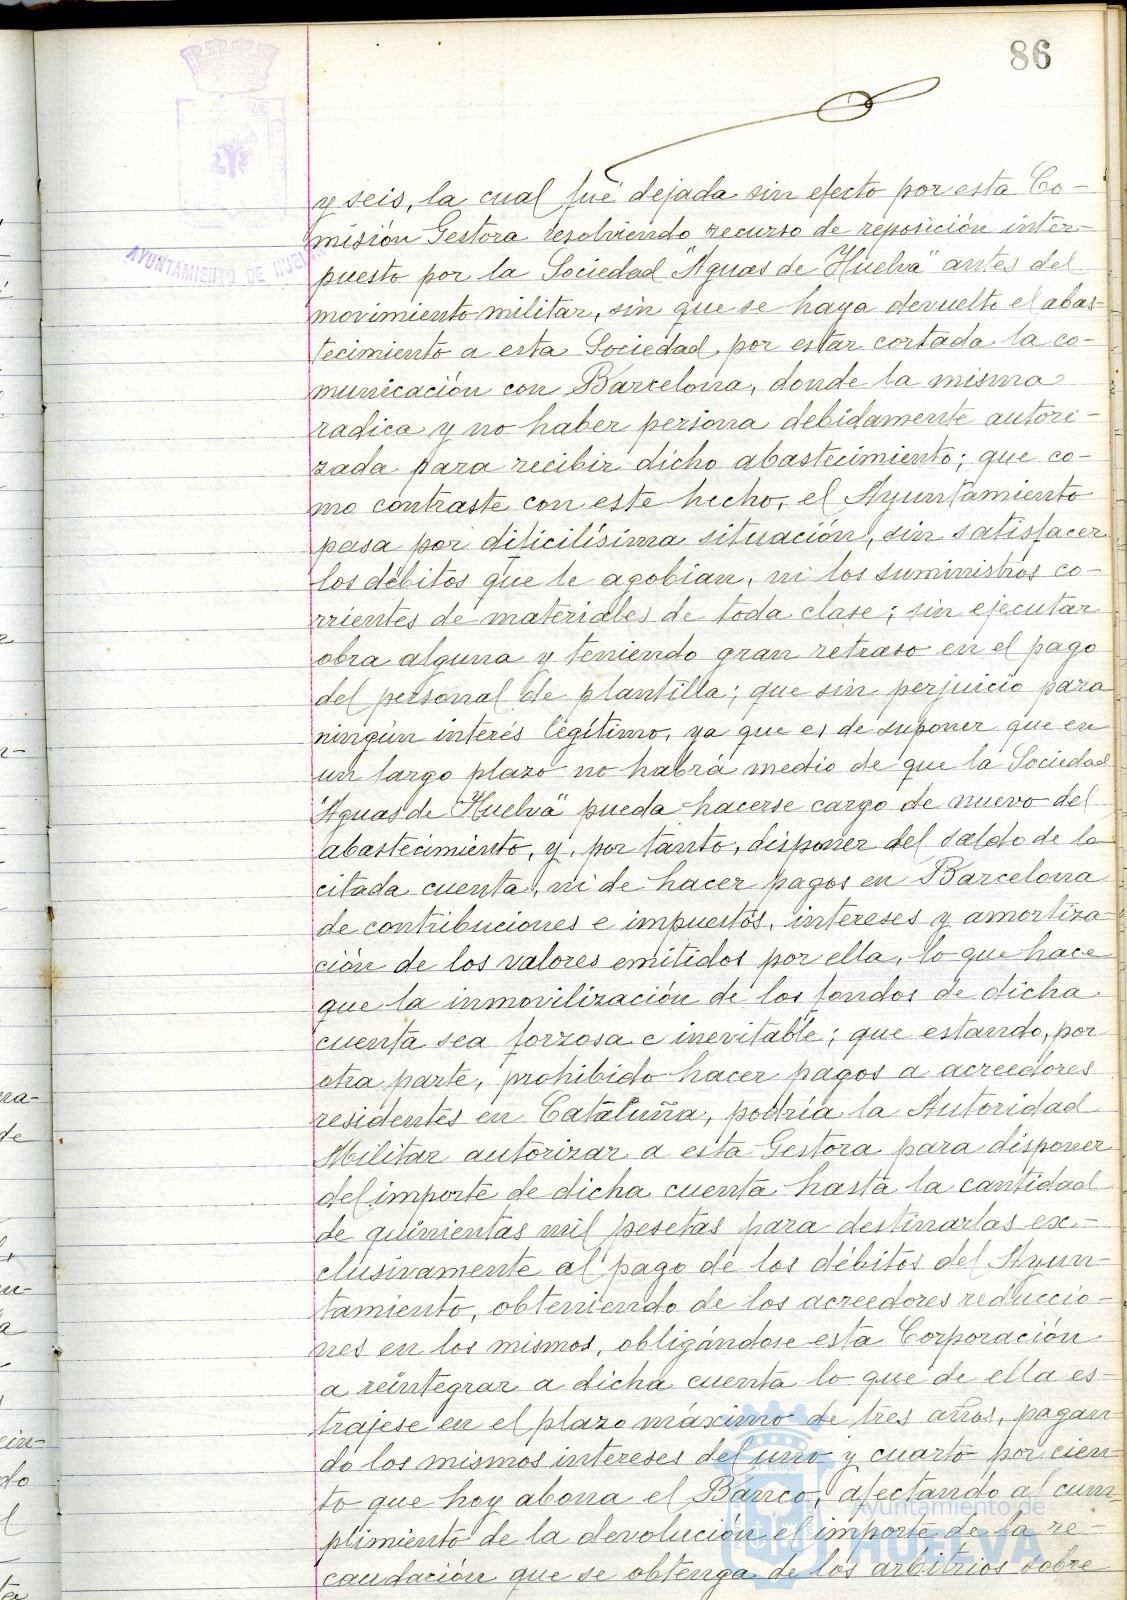 86
AYUNTAMIENTO DE HUELVA
y seis, la cual fué dejada sin efecto por esta Co-
misión Gestora resolviendo recurso de reposición inter-
puesto por la Sociedad "Aguas de Huelva" antes del
movimiento militar, sin que se haya devuelto el abas-
tecimiento a esta Sociedad, por estar cortada la co-
municación con Barcelona, donde la misma
radica y no haber persona debidamente autori-
zada para recibir dicho abastecimiento; que co-
mo contraste con este hecho, el Ayuntamiento
pasa por dificilísima situación, sin satisfacer
los débitos que le agobian, ni los suministros co-
rrientes de materiales de toda clase; sin ejecutar
obra alguna y teniendo gran retraso en el pago
del personal de plantilla; que sin perjuicio para
ningún interés legítimo, ya que es de suponer que en
un largo plazo no habrá medio de que la Sociedad
"Aguas de Huelva" pueda hacerse cargo de nuevo del
abastecimiento, y, por tanto, disponer del saldo de la
citada cuenta, ni de hacer pagos en Barcelona
de contribuciones e impuestos, intereses y amortiza-
ción de los valores emitidos por ella, lo que hace
que la inmovilización de los fondos de dicha
cuenta sea forzosa e inevitable; que estando, por
otra parte, prohibido hacer pagos a acreedores
residentes en Cataluña, podría la Autoridad
Militar autorizar a esta Gestora para disponer
del importe de dicha cuenta hasta la cantidad
de quinientas mil pesetas para destinarlas ex-
clusivamente al pago de los débitos del Ayun-
tamiento, obteniendo de los acreedores reduccio-
nes en los mismos, obligándose esta Corporación
a reintegrar a dicha cuenta lo que de ella es-
trajese en el plazo máximo de tres años, pagan-
do los mismos intereses del uno y cuarto por cien-
to que hoy abona el Banco, afectando al cum-
plimiento de la devolución el importe de la re-
caudación que se obtenga de los arbitrios sobre
Ayuntamiento de
HUELVA